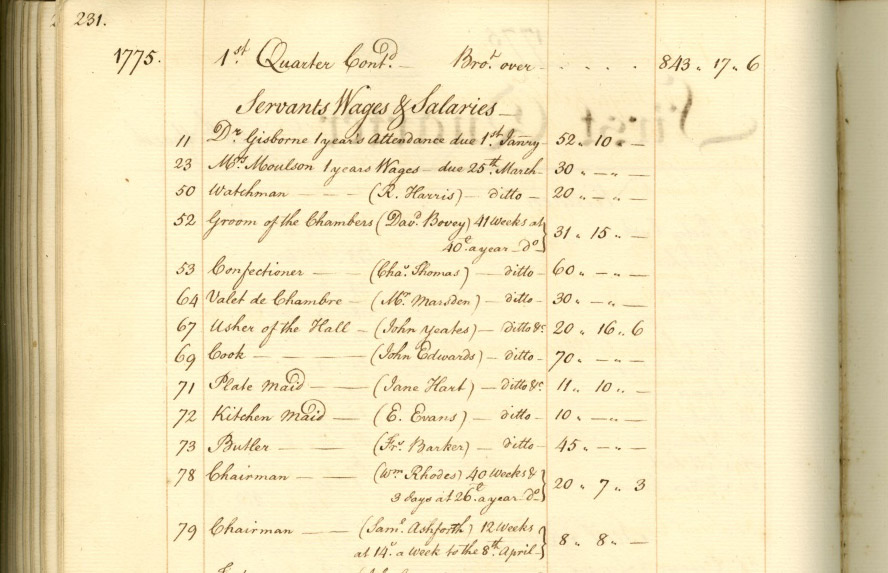 231.
1775. 1st. Quarter Contd. — Bror. over - . . . . 843 " 17 " 6
Servants Wages & Salaries —
11 Dr. Gisborne 1 year's Attendance due 1st. Janry - 52 " 10 " —
23 Mrs. Moulson 1 years Wages — due 25th. March - 30 " — " —
50 Watchman — — (R. Harris) — ditto - 20 " — " —
52 Groom of the Chambers (Davd. Bovey) 41 Weeks at
40£ a year - Do } 31 " 15 " —
53 Confectioner — — (Chas. Thomas) — ditto - 60 " — " —
64 Valet de Chambre — (Mr. Marsden) — ditto - 30 " — " —
67 Usher of the Hall — (John Yeates) — ditto &c 20 " 16 " 6
69 Cook — — — (John Edwards) — ditto - 70 " — " —
71 Plate Maid — — (Jane Hart) — ditto &c 11 " 10 " —
72 Kitchen Maid — (E. Evans) — ditto - 10 " — " —
73 Butler — — (Frs. Barker) — ditto - 45 " — " —
78 Chairman — — (Wm. Rhodes) 40 Weeks &
3 days at 26£ a year - Do } 20 " 7 " 3
79 Chairman — — (Saml. Ashforth) 12 Weeks
at 14s. a Week to the 8th. April - } 8 " 8 " —